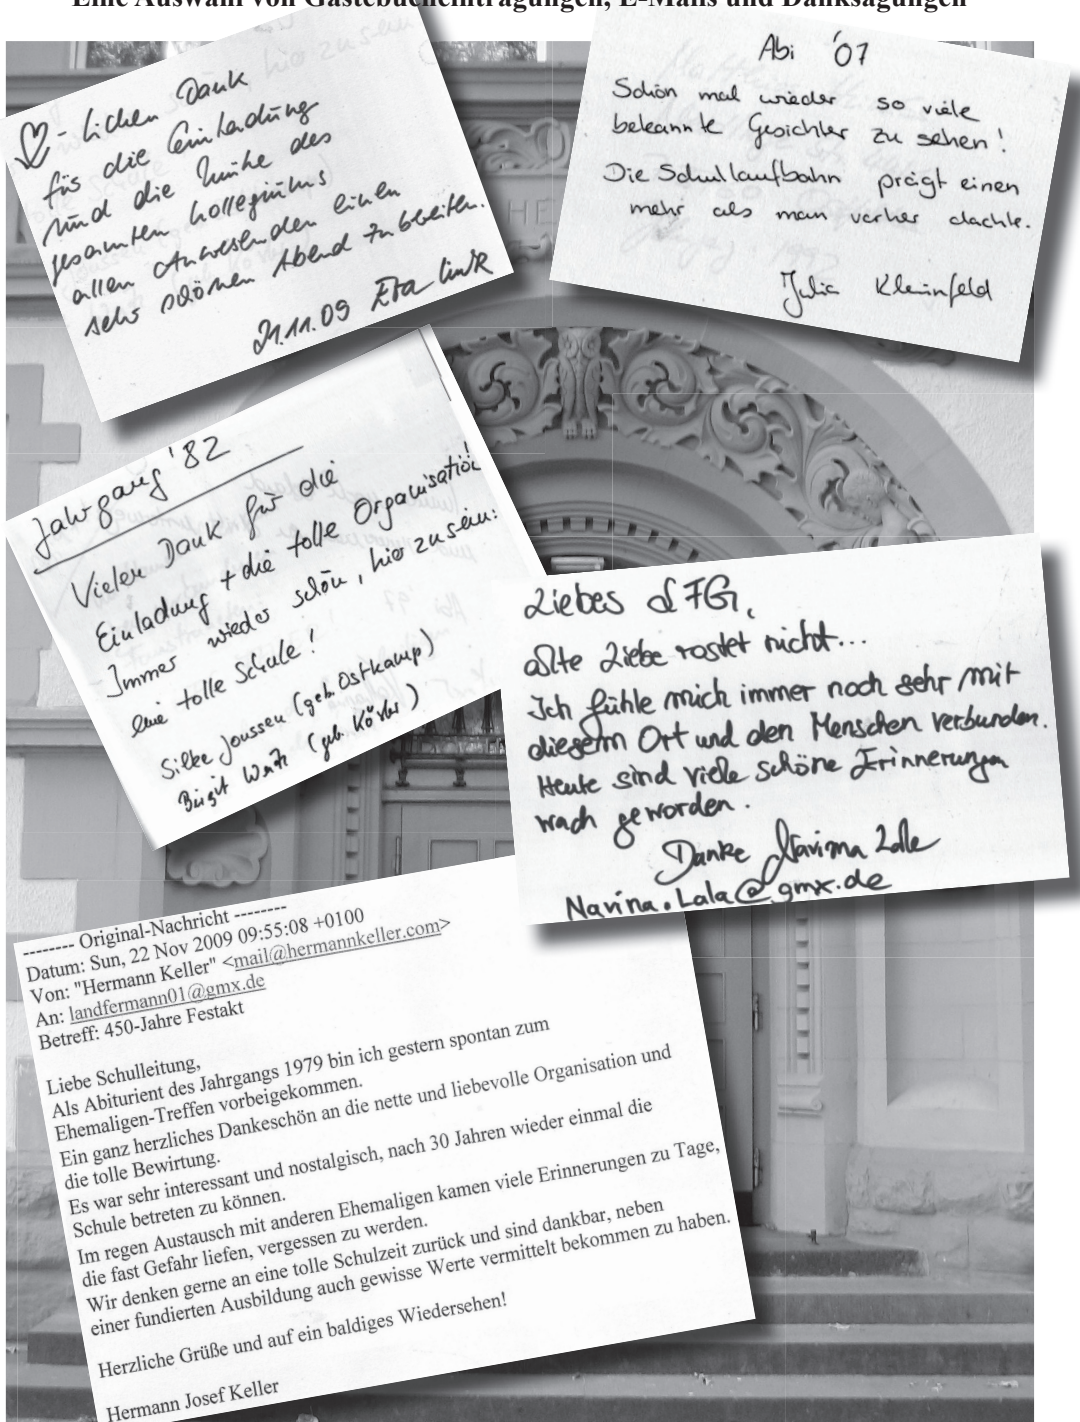 Eine Auswahl von Gästebucheintragungen, E-Mails und Danksagungen
♡-lichen Dank
für die Einladung
und die Mühe des
gesamten Kollegiums
allen Anwesenden einen
sehr schönen Abend zu bereiten.
21.11.09 Eva Link
Abi '07
Schön mal wieder so viele
bekannte Gesichter zu sehen!
Die Schullaufbahn prägt einen
mehr als man vorher dachte.
Julia Kleinfeld
Jahrgang '82
Vielen Dank für die
Einladung + die tolle Organisation!
Immer wieder schön, hier zu sein:
eine tolle Schule!
Silke Joussen (geb. Ostkamp)
Birgit (geb. Körver)
Liebes LFG,
alte Liebe rostet nicht...
Ich fühle mich immer noch sehr mit
diesem Ort und den Menschen verbunden.
Heute sind viele schöne Erinnerungen
wach geworden.
Danke Navina
Navina.Lala@gmx.de
-------- Original-Nachricht --------
Datum: Sun, 22 Nov 2009 09:55:08 +0100
Von: "Hermann Keller" <mail@hermannkeller.com>
An: landfermann01@gmx.de
Betreff: 450-Jahre Festakt
Liebe Schulleitung,
Als Abiturient des Jahrgangs 1979 bin ich gestern spontan zum
Ehemaligen-Treffen vorbeigekommen.
Ein ganz herzliches Dankeschön an die nette und liebevolle Organisation und
die tolle Bewirtung.
Es war sehr interessant und nostalgisch, nach 30 Jahren wieder einmal die
Schule betreten zu können.
Im regen Austausch mit anderen Ehemaligen kamen viele Erinnerungen zu Tage,
die fast Gefahr liefen, vergessen zu werden.
Wir denken gerne an eine tolle Schulzeit zurück und sind dankbar, neben
einer fundierten Ausbildung auch gewisse Werte vermittelt bekommen zu haben.
Herzliche Grüße und auf ein baldiges Wiedersehen!
Hermann Josef Keller